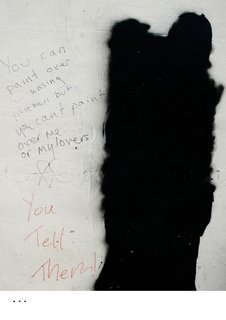 You can
paint over
policemen but
you can't paint
over me.
or my lovers
You
Tell
Them!
...